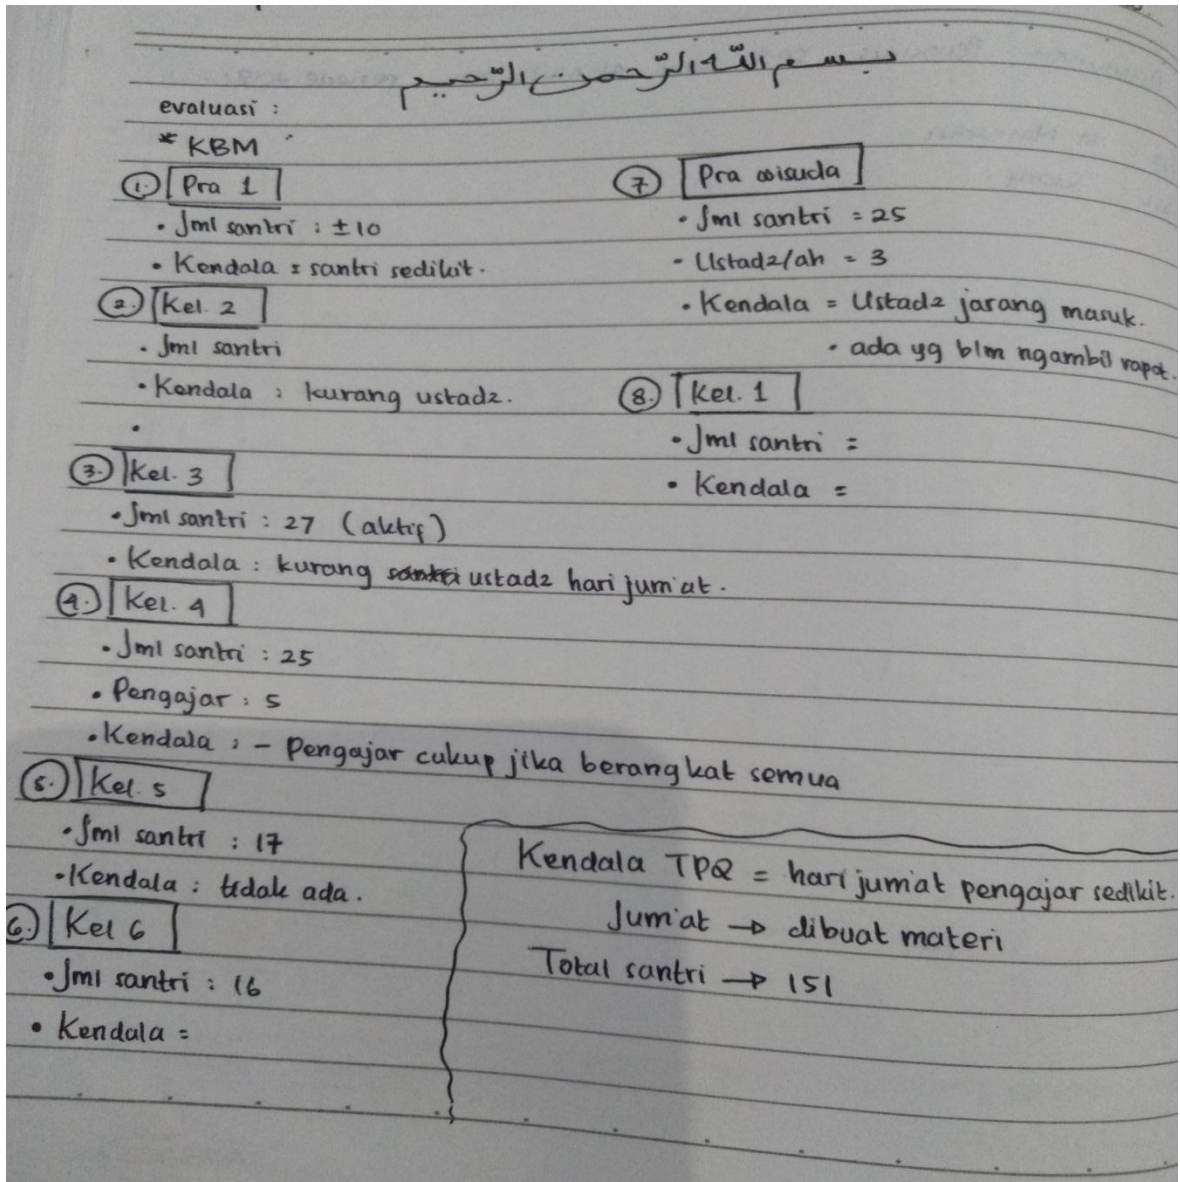 بسم الله الرّحمن الرّحيم
evaluasi :
* KBM
1. Pra 1
• Jml santri : ±10
• Kendala : santri sedikit.
2. Kel. 2
• Jml santri
• Kendala : kurang ustadz.
•
3. Kel. 3
• Jml santri : 27 (aktif)
• Kendala : kurang santri ustadz hari jum'at.
4. Kel. 4
• Jml santri : 25
• Pengajar : 5
• Kendala : - Pengajar cukup jika berangkat semua
5. Kel. 5
• Jml santri : 17
• Kendala : tidak ada.
6. Kel 6
• Jml santri : 16
• Kendala =
7. Pra wisuda
• Jml santri = 25
- Ustadz/ah = 3
• Kendala = Ustadz jarang masuk.
• ada yg blm ngambil rapot.
8. Kel. 1
• Jml santri =
• Kendala =
Kendala TPQ = hari jum'at pengajar sedikit.
Jum'at → dibuat materi
Total santri → 151